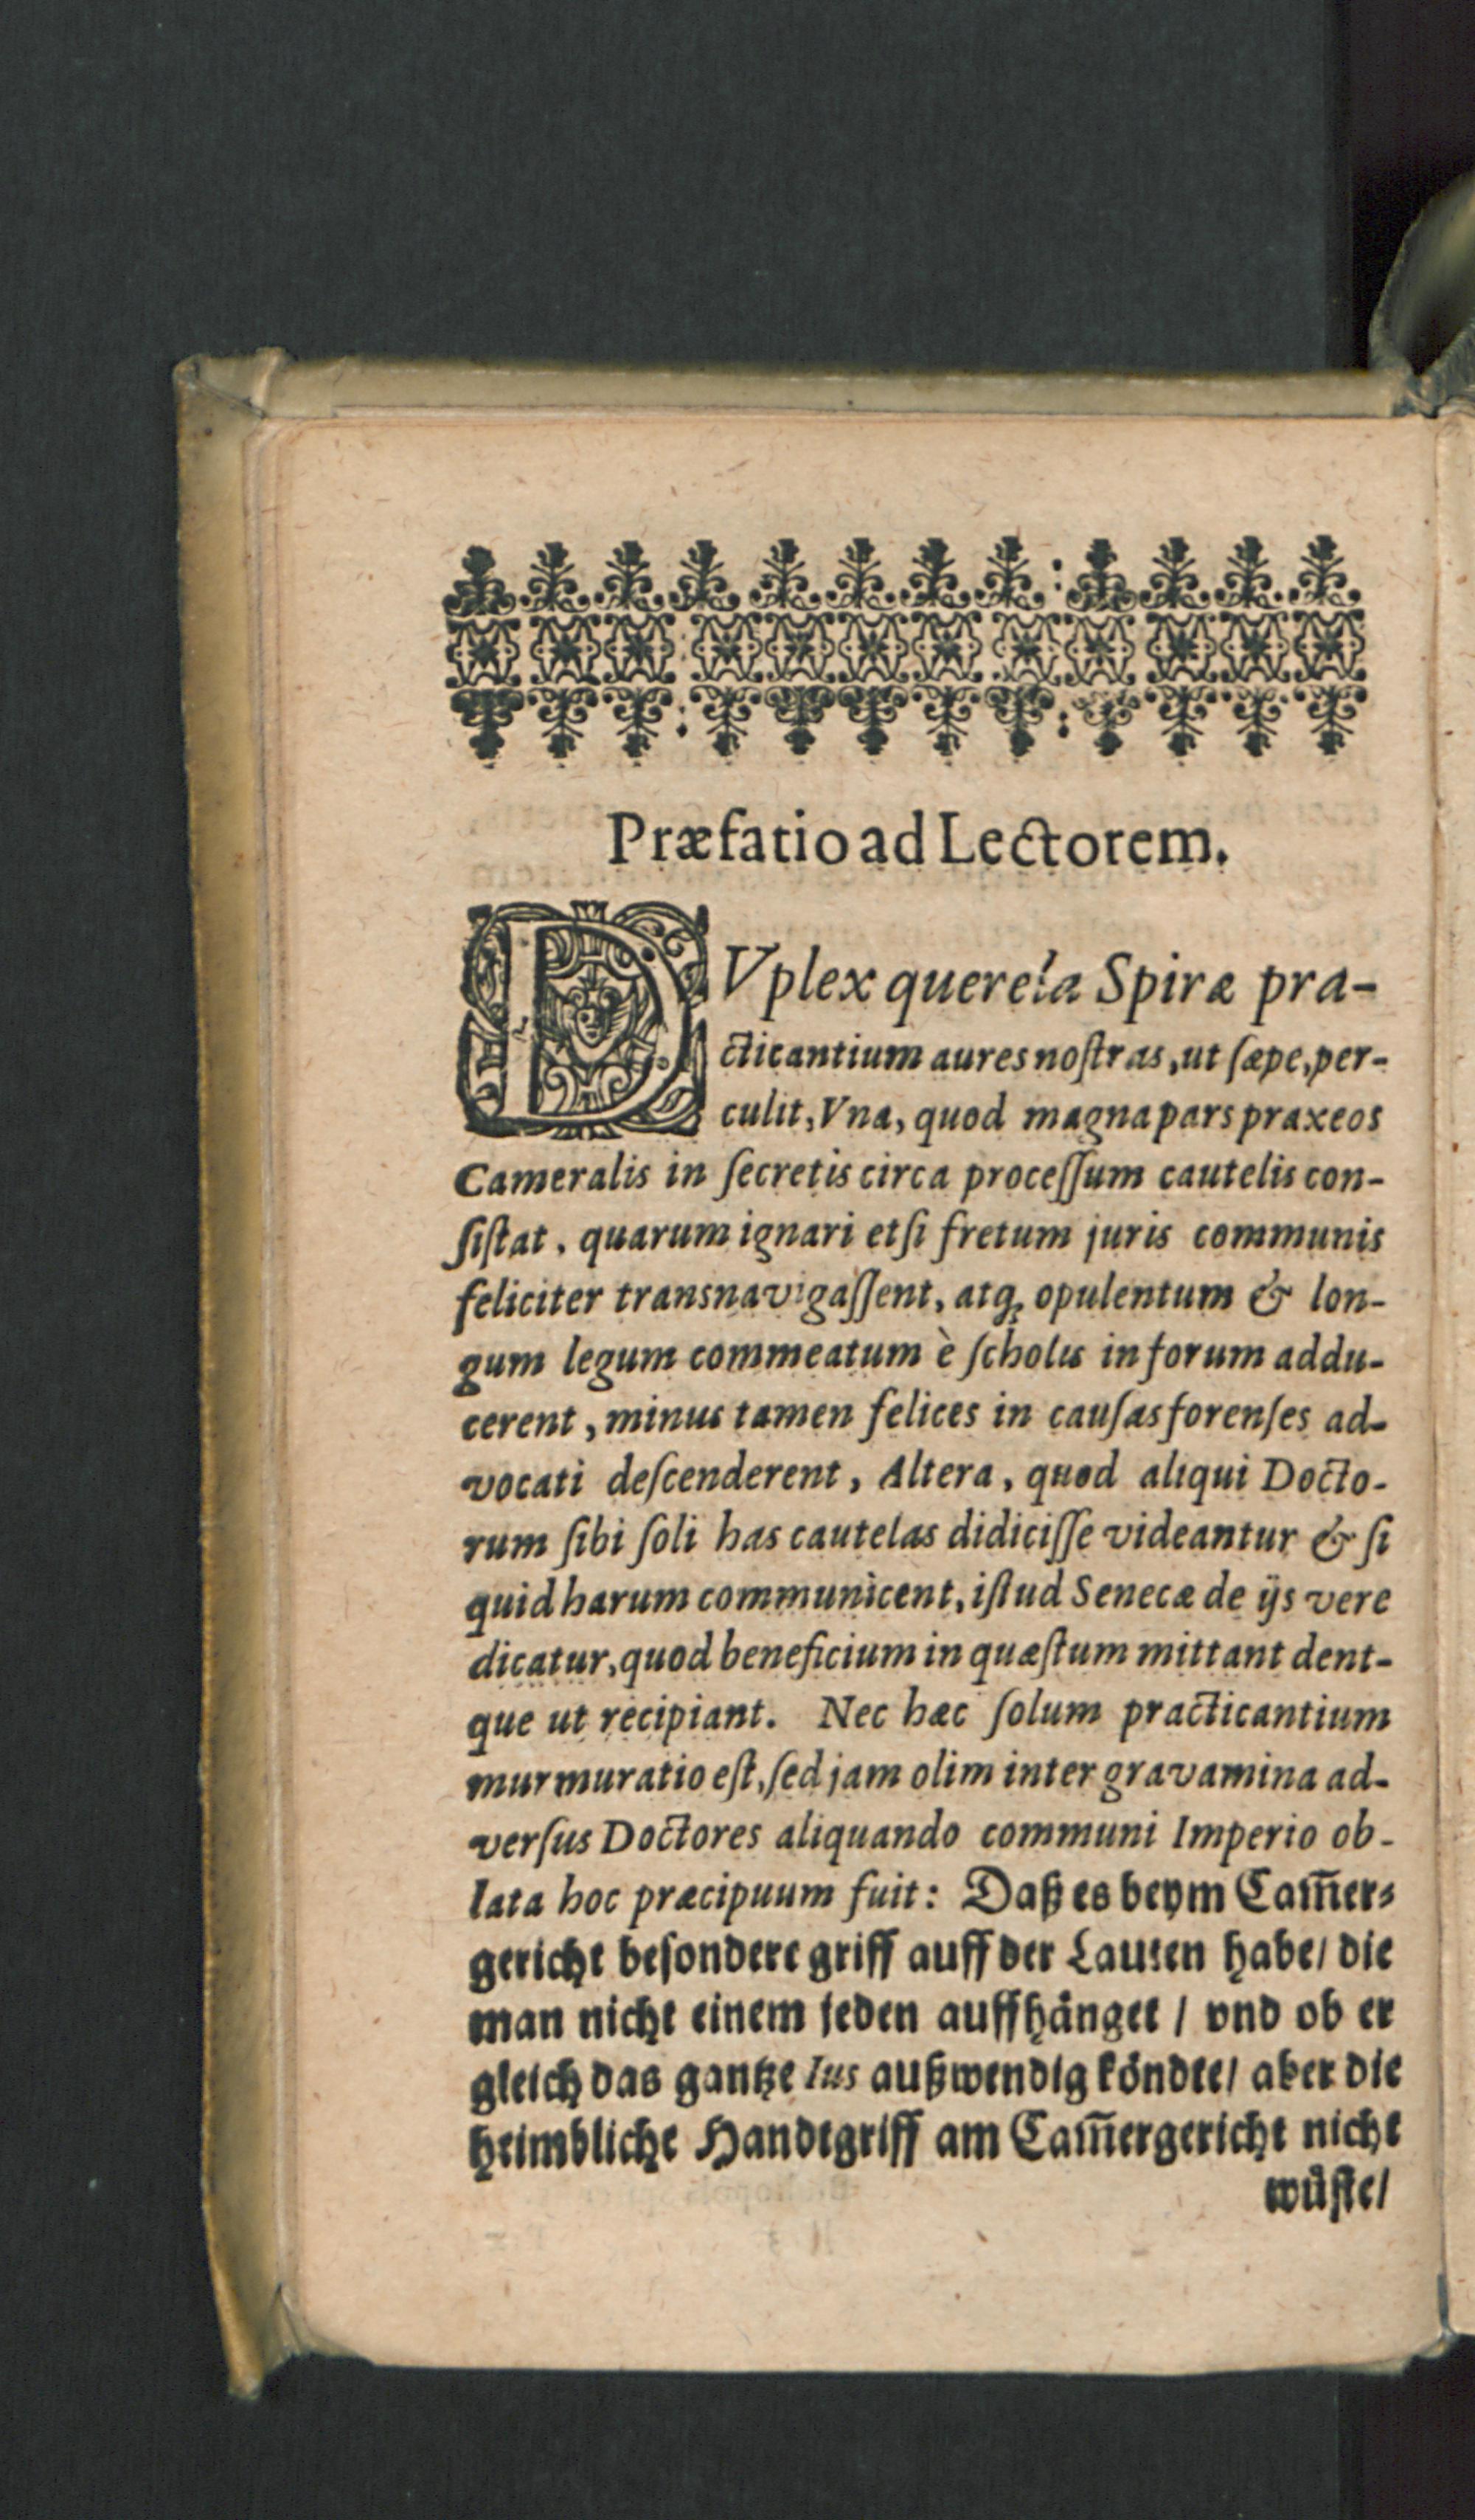 Præfatio ad Lectorem.
DVplex querela Spiræ pra-
cticantium aures noſtras, ut ſæpe, per-
culit, Vna, quod magna pars praxeos
Cameralis in ſecretis circa proceſſum cautelis con-
ſiſtat, quarum ignari etſi fretum juris communis
feliciter transnavigaſſent, atq; opulentum & lon-
gum legum commeatum è ſcholis in forum addu-
cerent, minus tamen felices in cauſas forenſes ad-
vocati deſcenderent, Altera, quod aliqui Docto-
rum ſibi ſoli has cautelas didiciſſe videantur & ſi
quid harum communicent, iſtud Senecæ de ijs vere
dicatur, quod beneficium in quæſtum mittant dent-
que ut recipiant. Nec hæc ſolum practicantium
murmuratio eſt, ſed jam olim inter gravamina ad-
verſus Doctores aliquando communi Imperio ob-
lata hoc præcipuum fuit: Daß es beym Cam̄er-
gericht beſondere griff auff der Lauten habe/ die
man nicht einem jeden auffhänget / vnd ob er
gleich das gantze Ius außwendig köndte/ aber die
heimbliche Handtgriff am Cam̄ergericht nicht
wüſte/